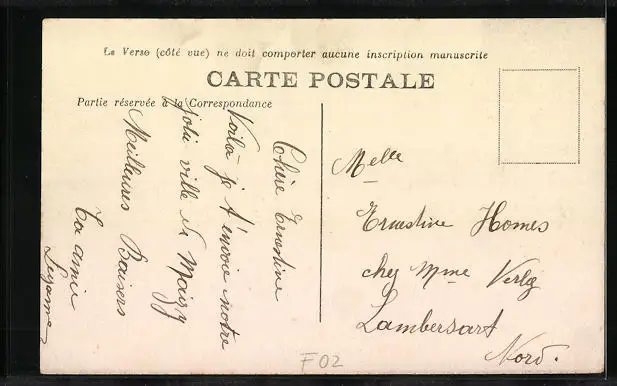 Le Verso (côté vue) ne doit comporter aucune inscription manuscrite
CARTE POSTALE
Partie réservée à la Correspondance
Chère Ernestine
Voilà je t'envoie notre
jolie ville de
Meilleures Baisers
Ta amie
Melle
Ernestine Homes
chez Mme Verlg
Lambersart
Nord.
F02